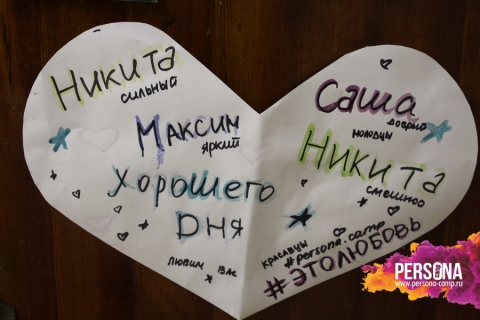 Никита
сильный
Максим
яркий
Хорошего
дня
любим вас
Саша
добрый
молодцы
Никита
смешной
красавцы
#persona.camp
#ЭТОЛЮБОВЬ
PERSONA
www.persona-camp.ru